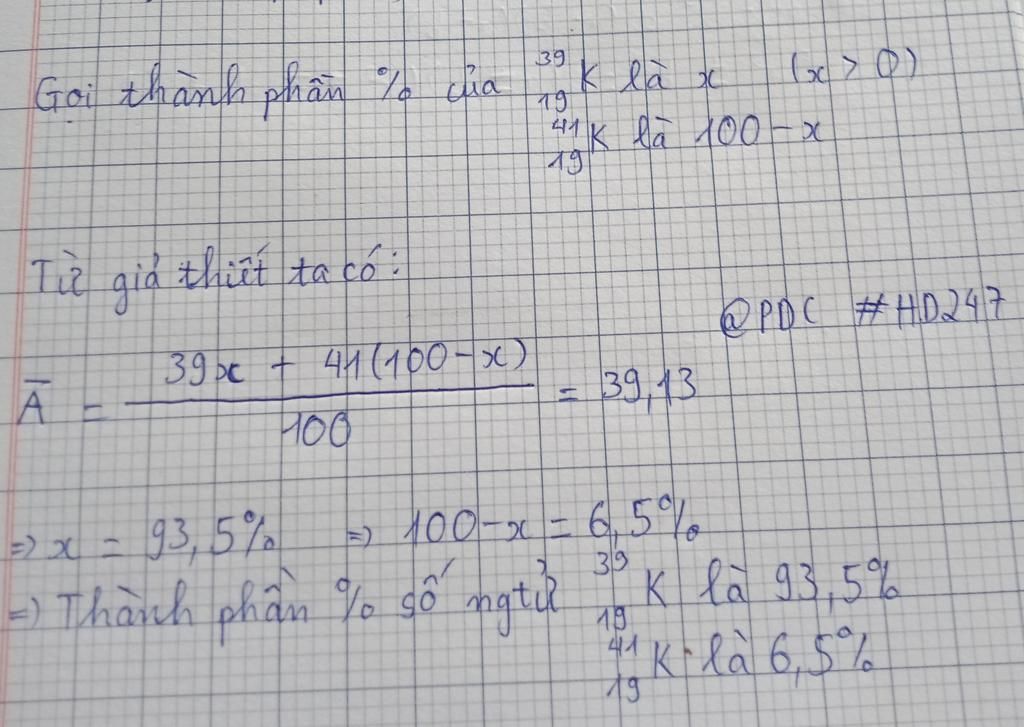 Gọi thành phần % của ³⁹₁₉K là x (x > 0)
⁴¹₁₉K là 100 - x
Từ giả thiết ta có:
@PDC #HD247
Ā = (39x + 41(100 - x))/100 = 39,13
=> x = 93,5% => 100 - x = 6,5%
=> Thành phần % số ngtử ³⁹₁₉K là 93,5%
⁴¹₁₉K là 6,5%